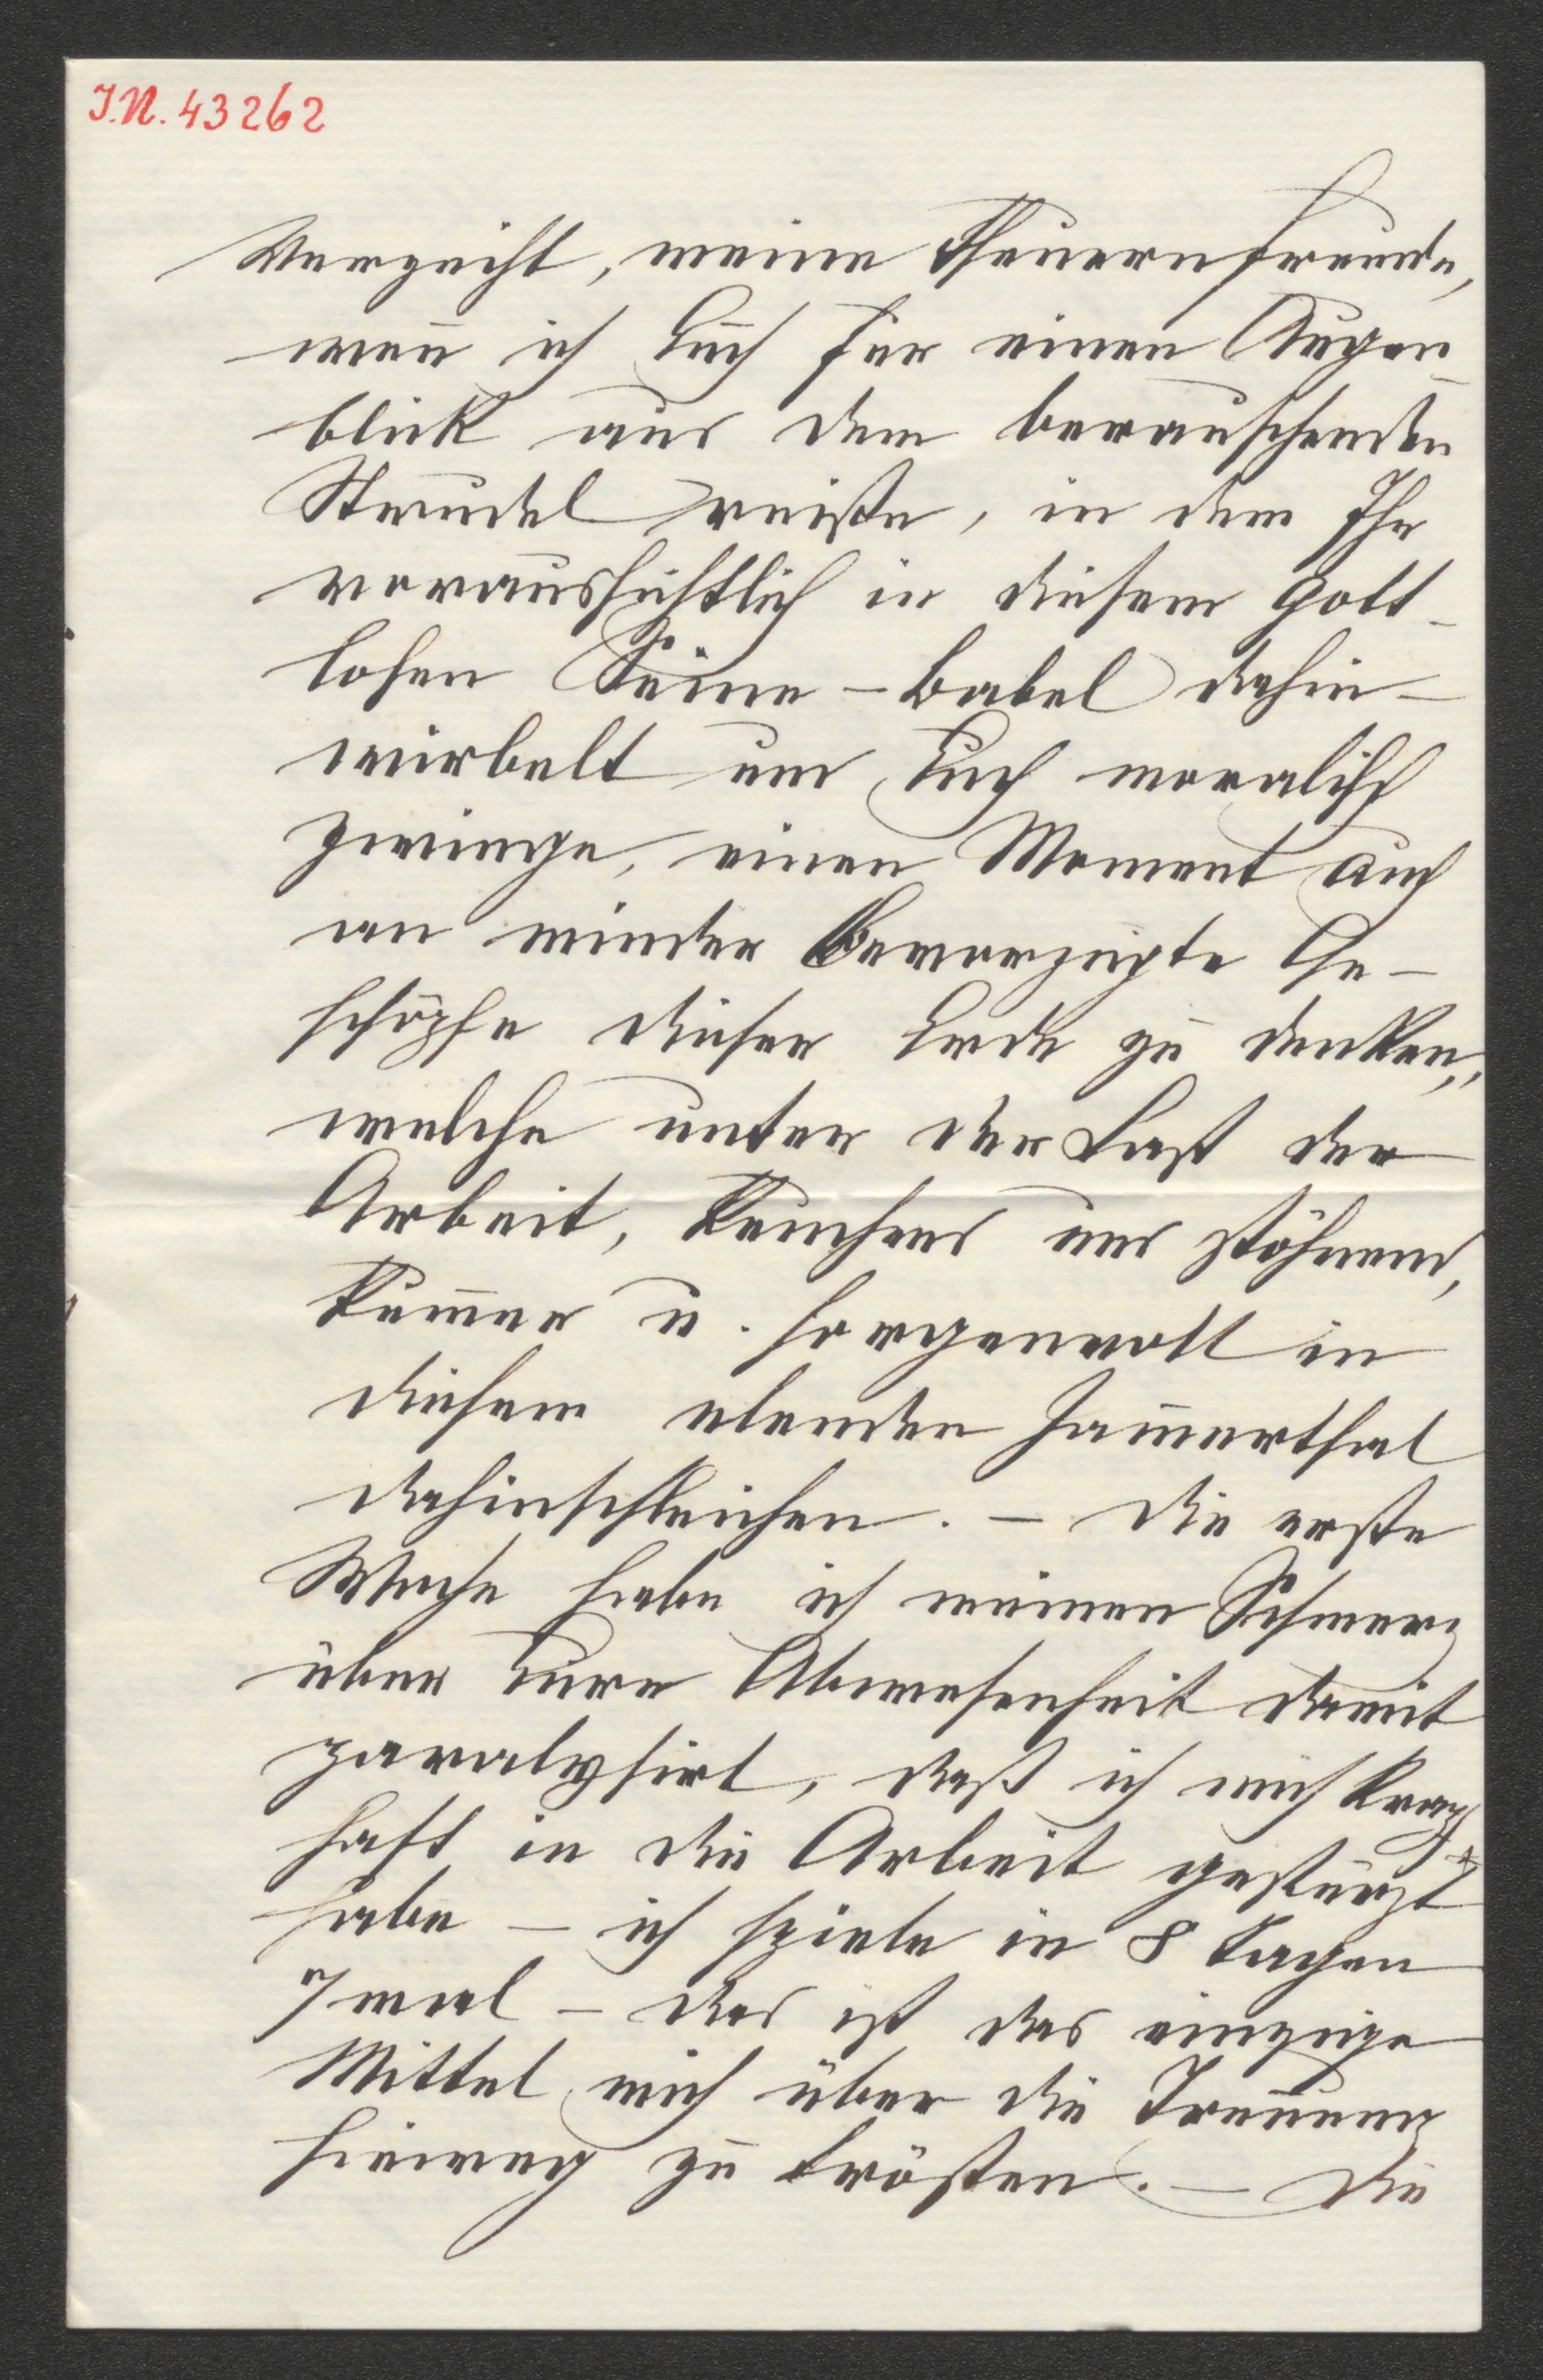 I.N. 43262
Verzeiht, meine Theuern Freunde,
weñ ich Euch für einen Augen
blick aus dem berauschenden
Strudel reiße, in dem Ihr
voraussichtlich in diesem gott-
losen Seine-Babel dahin-
wirbelt um Euch moralisch
zwinge, einen Moment auch
an minder Bevorzugte Ge-
schöpfe dieser Erde zu denken,
welche unter der Last der
Arbeit, keuchend und stöhnend,
kum̄er u. sorgenvoll in
diesem elenden Jam̄erthal
dahinschleichen. – Die erste
Woche habe ich meinen Schmerz
über Eure Abwesenheit damit
paralysirt, daß ich mich krampf
haft in die Arbeit gestürzt
habe – ich spiele in 8 Tagen
7 mal – das ist das einzige
Mittel mich über die Treñung
hinweg zu trösten. – Die